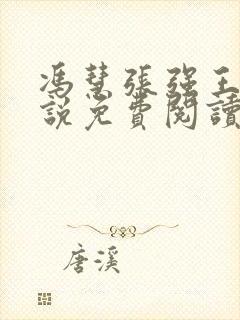 馮慧張強王
説免費閱讀
唐溪